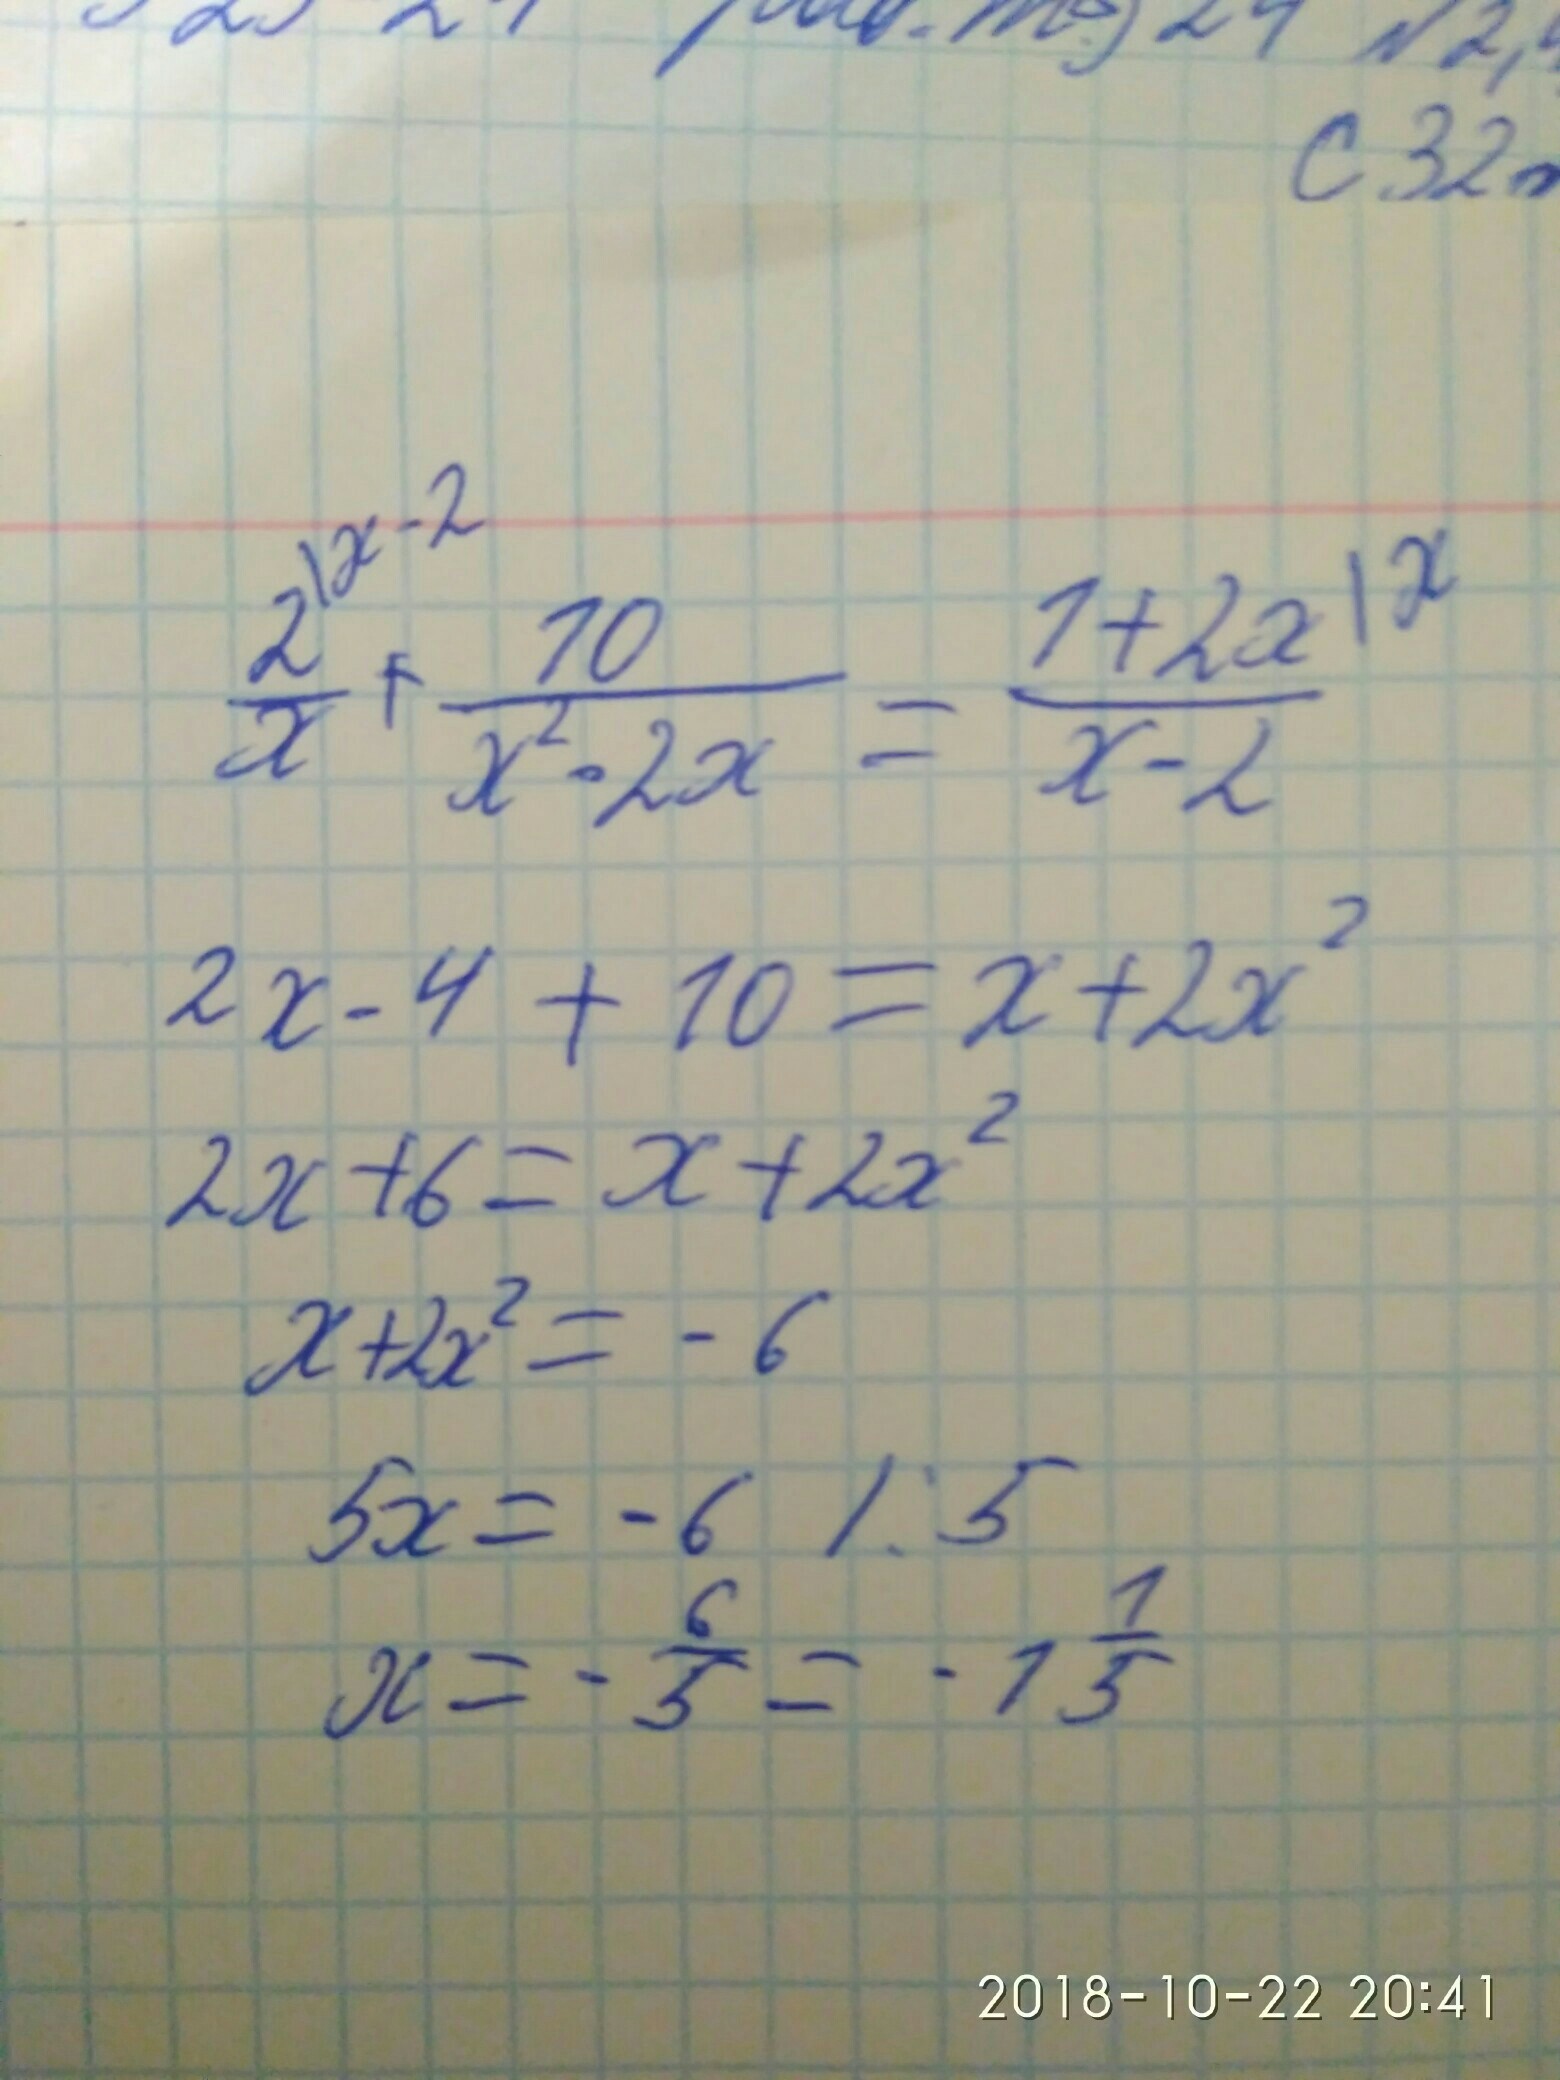 24 №2,4
С 32
2|x-2 / x + 10 / x²-2x = 1+2x|x / x-2
2x-4+10=x+2x²
2x+6=x+2x²
x+2x²=-6
5x=-6 /:5
x=-6/5=-1 1/5
2018-10-22 20:41